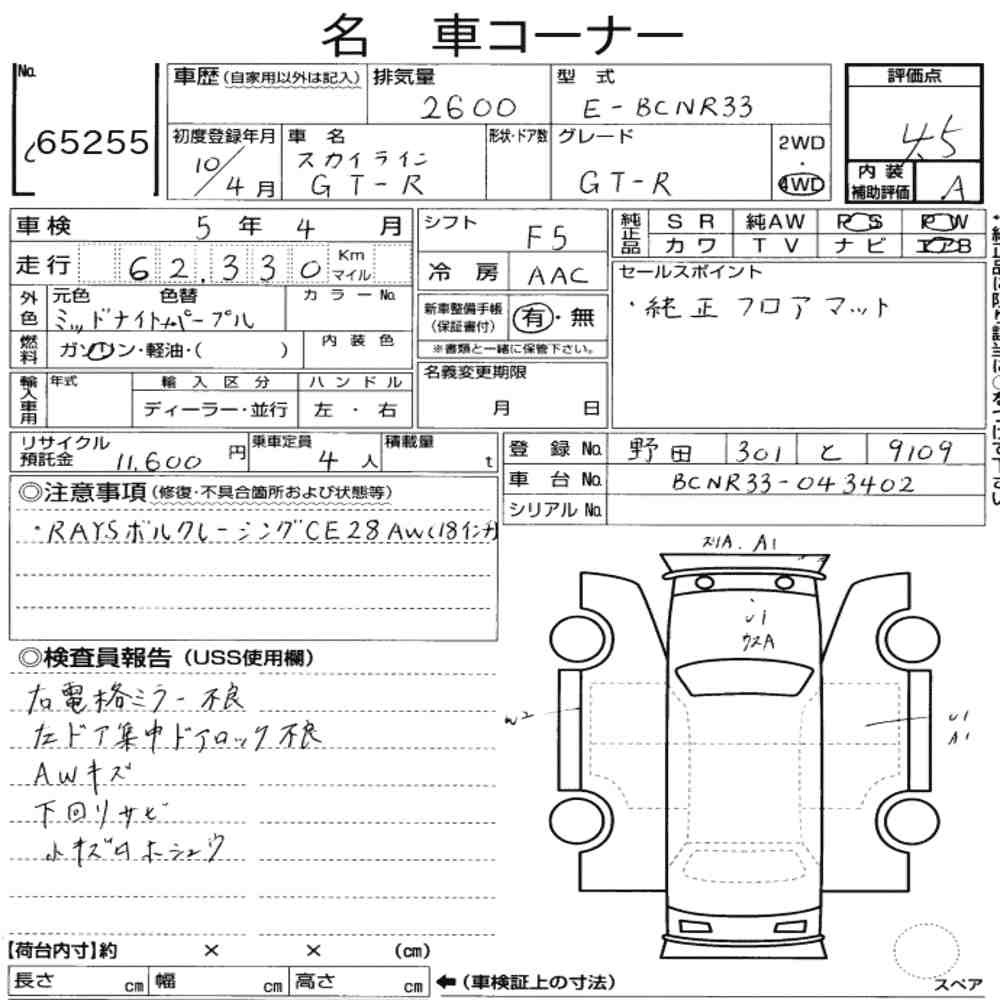 名 車コーナー
No. 65255
車歴(自家用以外は記入) 排気量 2600 型式 E-BCNR33 評価点 4.5
初度登録年月 10/4月 車名 スカイライン GT-R 形状・ドア数 グレード GT-R 2WD・4WD 内装補助評価 A
車検 5年4月 シフト F5 純正品 SR 純AW PS PW
カワ TV ナビ エアB
走行 62,330 Km マイル 冷房 AAC
セールスポイント
・純正フロアマット
外色 元色 色替 カラーNo.
ミッドナイトパープル
新車整備手帳(保証書付) 有・無
※書類と一緒に保管下さい。
燃料 ガソリン・軽油・( ) 内装色
輸入車用 年式 輸入区分 ハンドル
ディーラー・並行 左・右
名義変更期限
月 日
リサイクル預託金 11,600円 乗車定員 4人 積載量 t
登録No. 野田 301 と 9109
車台No. BCNR33-043402
シリアルNo.
◎注意事項(修復・不具合箇所および状態等)
・RAYSボルクレーシングCE28AW(18インチ)
◎検査員報告(USS使用欄)
右電格ミラー不良
左ドア集中ドアロック不良
AWキズ
下回りサビ
小キズ
A1
U1
W2
U1
A1
【荷台内寸】約 × × (cm)
長さ cm 幅 cm 高さ cm ←(車検証上の寸法)
スペア